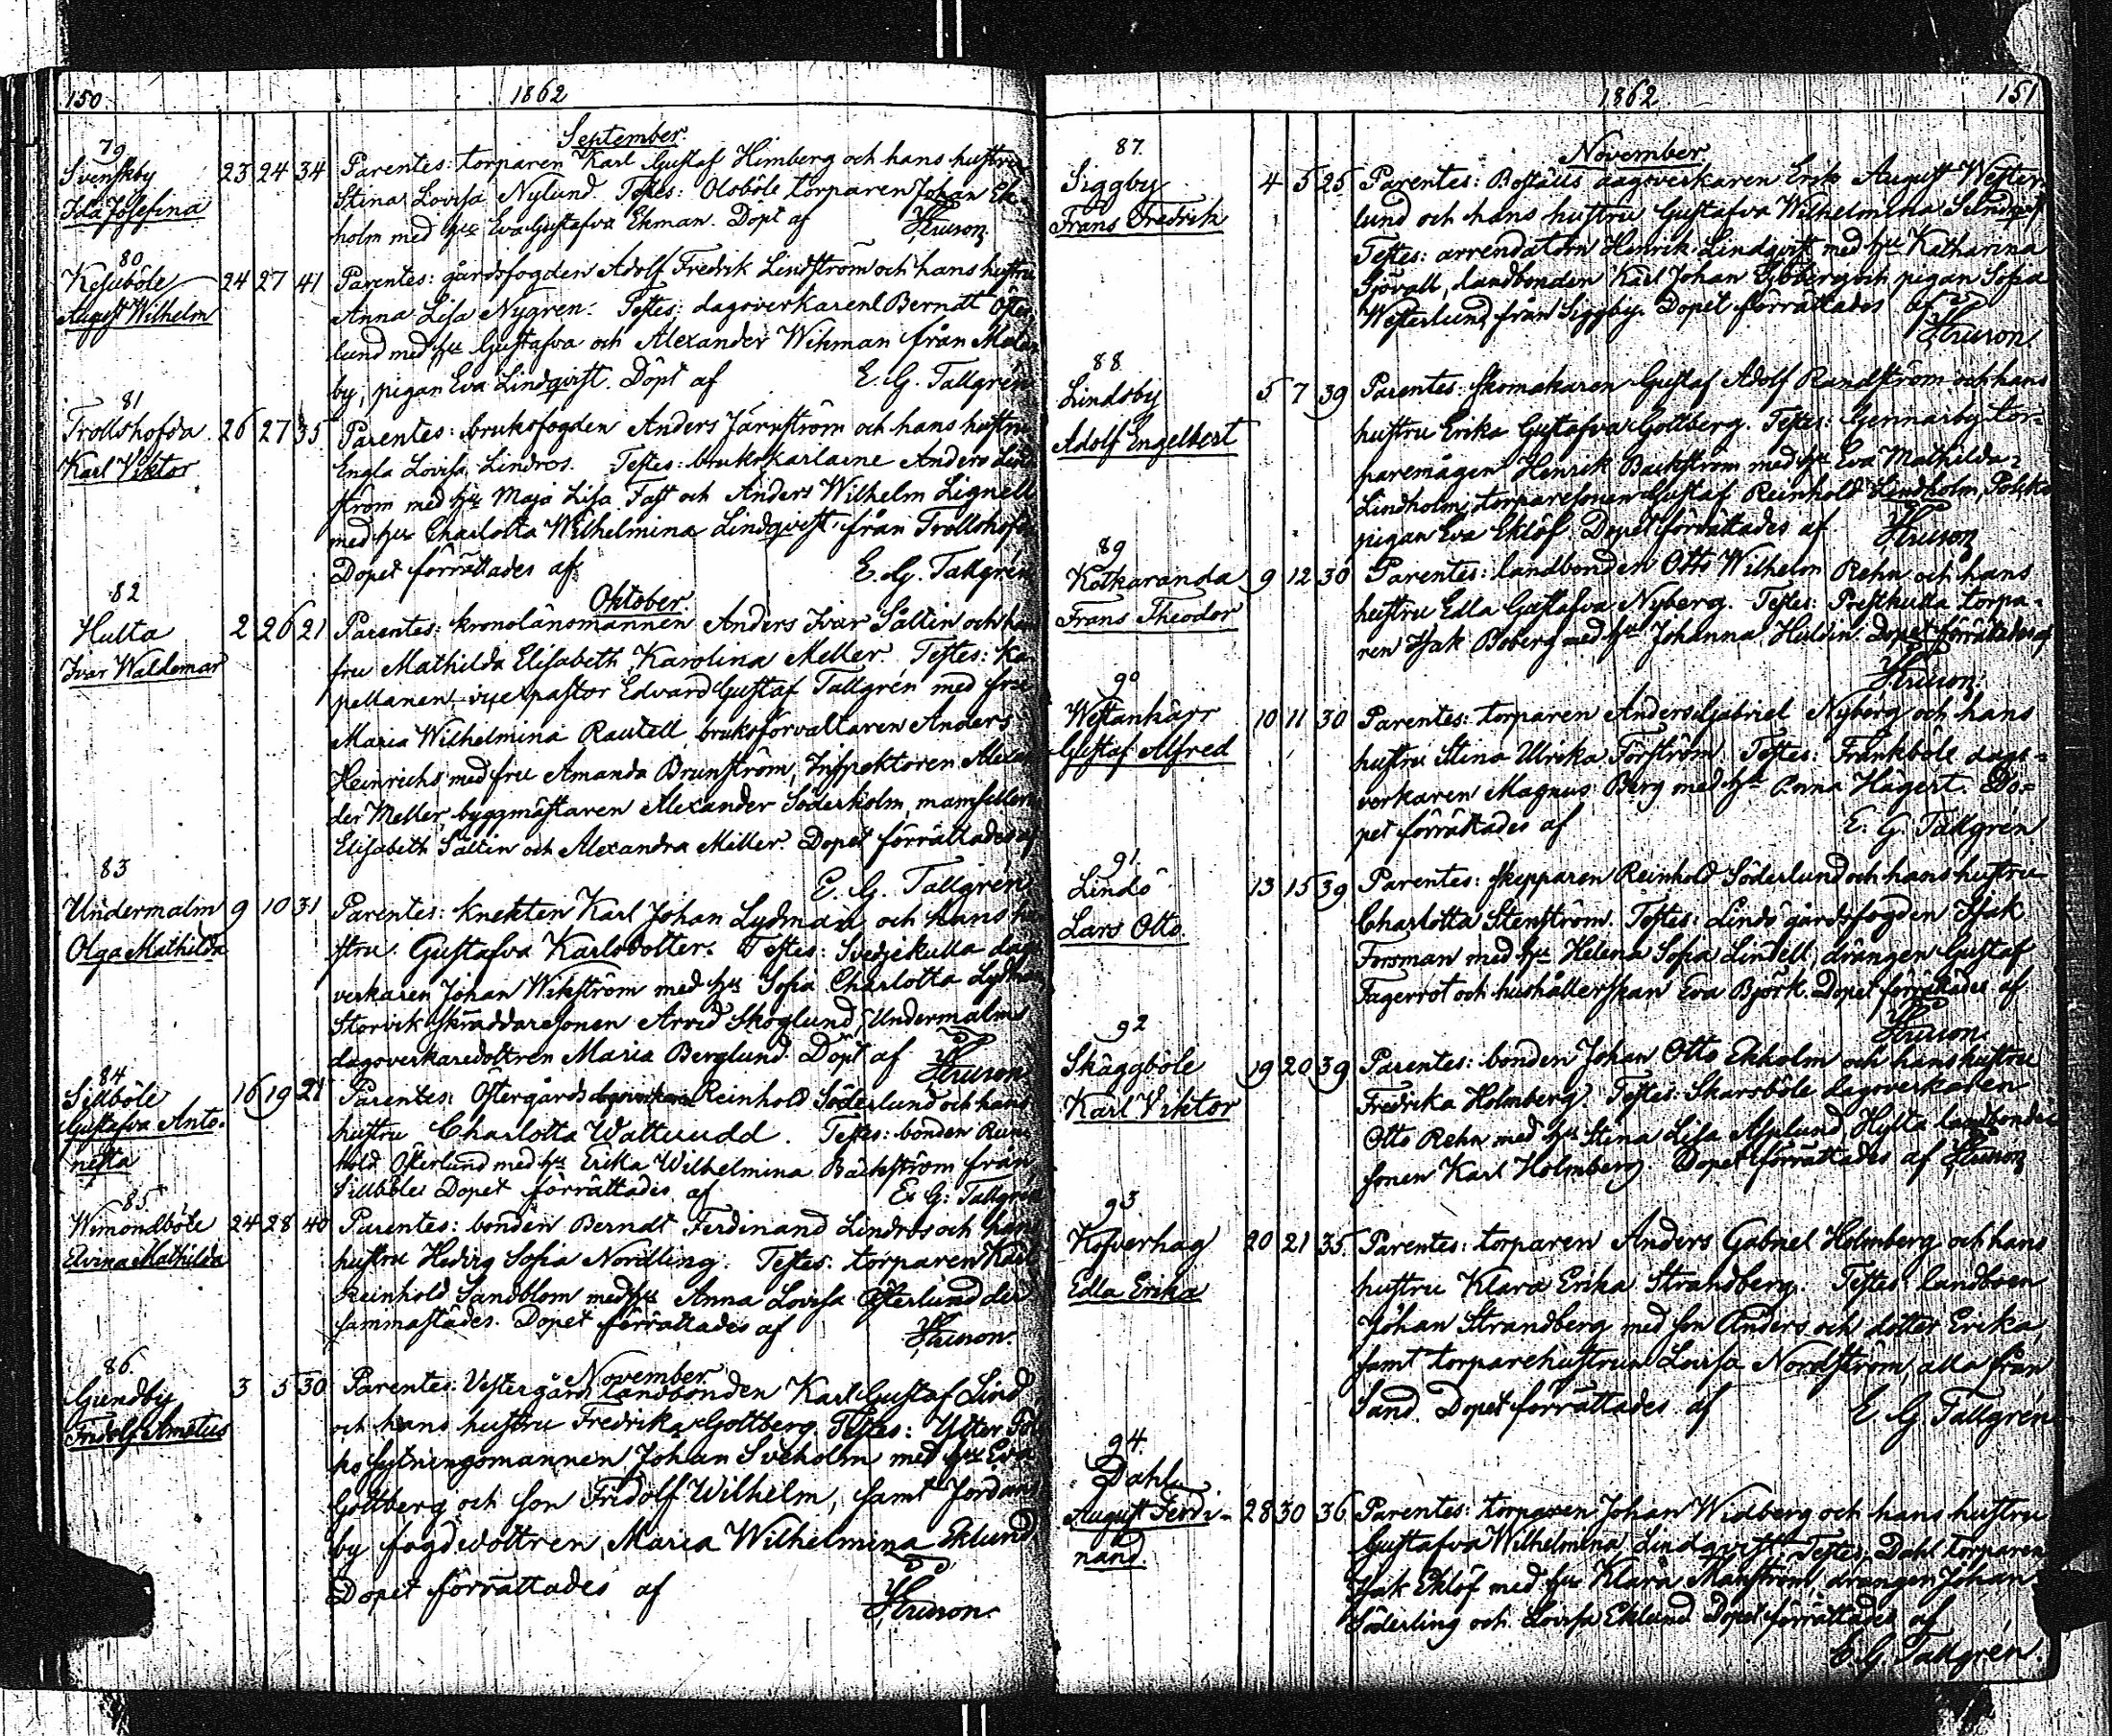 150
1862
September.
79
Svenskby
Ida Josefina
23 24 34
Parentes: torparen Karl Gustaf Himberg och hans hustru
Stina Lovisa Nylund. Testes: Olsböle torparen Johan Ek-
holm med hu Eva Gustafva Ekman. Döpt af
80
Kesuböle
August Wilhelm
24 27 41
Parentes: gårdsfogden Adolf Fredrik Lindström och hans hustru
Anna Lisa Nygren. Testes: dagsverkaren Berndt Öster-
lund med hu Gustafva och Alexander Wikman från Malm
by, pigan Eva Lindqvist. Döpt af E. G. Tallgrén
81
Trollshofda
Karl Viktor
26 27 35
Parentes: bruksfogden Anders Järnström och hans hustru
Engla Lovisa Lindros. Testes: brukskarlarne Anders Lind
ström med hu Maja Lisa Fast och Anders Wilhelm Lignell
med hu Charlotta Wilhelmina Lindqvist från Trollshofda
Dopet förrättades af E. G. Tallgrén
Oktober.
82
Hulta
Ivar Waldemar
2 26 21
Parentes: kronolänsmannen Anders Ivar Sältin och hans
fru Mathilda Elisabeth Karolina Meller. Testes: ka
pellanen, vicepastor Edvard Gustaf Tallgrén med fru
Maria Wilhelmina Rautell, bruksförvaltaren Anders
Heinrichs med fru Amanda Brunström, Inspektoren Alexan
der Meller, byggmästaren Alexander Söderholm, mamsellerna
Elisabeth Sältin och Alexandra Miller. Dopet förrättades af
E. G. Tallgrén
83
Undermalm
Olga Mathilda
9 10 31
Parentes: knekten Karl Johan Lydman och hans hu
stru Gustafva Karlsdotter. Testes: Svedjekulla dags
verkaren Johan Wikström med hu Sofia Charlotta Lydman
Storvik skräddaresonen Arvid Skoglund, Undermalms
dagsverkaredottren Maria Berglund. Döpt af
84
Sillböle
Gustafva Anto-
nesta
16 19 21
Parentes: Östergårds Reinhold Söderlund och hans
hustru Charlotta Wattrudd. Testes: bonden Rein
hold Österlund med hu Erika Wilhelmina Bäckström från
Sillböle Dopet förrättades af E. G. Tallgrén
85.
Wimondböle
Elvina Mathilda
24 28 40
Parentes: bonden Berndt Ferdinand Lindros och hans
hustru Hedvig Sofia Nordling. Testes: torparen Karl
Reinhold Sandblom med hu Anna Lovisa Österlund der
sammastädes. Dopet förrättades af
November.
86.
Gundby
Fridolf Ametius
3 5 30
Parentes: Vestergård landbonden Karl Gustaf Lind
och hans hustru Fredrika Gottberg. Testes:
sytningsmannen Johan Sveholm med hu Eva
Gottberg och son Fridolf Wilhelm, samt Jordans
by fogdedottren, Maria Wilhelmina Eklund
Dopet förrättades af
1862
151
87.
November
Siggby
Frans Fredrik
4 5 25
Parentes: Boställs dagsverkaren Erik August Wester-
lund och hans hustru Gustafva Wilhelmina Sundqvist
Testes: arrendatorn Henrik Lindqvist med hu Katharina
Sjövall, landbonden Karl Johan och pigan Sofia
Westerlund från Siggby. Dopet förrättades af
88
Lindsby
Adolf Engelbert
5 7 39
Parentes: skomakaren Gustaf Adolf Randström och hans
hustru Erika Gustafva Gottberg. Testes: Gennarby tor-
paremågen Henrik Backström med hu Eva Mathilda
Lindholm, torparesonen Gustaf Reinhold Lindholm,
pigan Eva Eklöf. Dopet förrättades af
89
Kotkaranda
Frans Theodor
9 12 30
Parentes: landbonden Otto Wilhelm Rehn och hans
hustru Edla Gustafva Nyberg. Testes: Prestkulla torpa-
ren Isak Boberg med hu Johanna Huldin. Dopet förrättades af
90
Westankärr
Gustaf Alfred
10 11 30
Parentes: torparen Anders Gabriel Nyberg och hans
hustru Stina Ulrika Forström. Testes: Frankböle dags-
verkaren Magnus Berg med hu Anna Hägert. Do-
pet förrättades af E. G. Tallgrén
91.
Lindö
Lars Otto.
13 15 39
Parentes: skepparen Reinhold Söderlund och hans hustru
Charlotta Stenström. Testes: Lindö gårdsfogden Isak
Forsman med hu Helena Sofia Lindell, drängen Gustaf
Fagerrot och hushållerskan Eva Björk. Dopet förrättades af
92
Skäggböle
Karl Viktor
19 20 39
Parentes: bonden Johan Otto Ekholm och hans hustru
Fredrika Holmberg. Testes: Skarsböle dagsverkaren
Otto Rehn med hu Stina Lisa Asplund, Hylta landbonde
sonen Karl Holmberg. Dopet förrättades af
93.
Kofverhag
Edla Erika
20 21 35.
Parentes: torparen Anders Gabriel Holmberg och hans
hustru Klara Erika Strandberg. Testes: landboen
Johan Strandberg med son Anders och dotter Erika
samt torparehustrun Lovisa Nordström, alla från
Sand. Dopet förrättades af E. G. Tallgrén
94.
Dahl
August Ferdi-
nand.
28 30 36
Parentes: torparen Johan Widberg och hans hustru
Gustafva Wilhelmina Lindqvist. Testes: Dahl torparen
Isak Eklöf med hu Klara Manström, drängen Johan
Söderling och Lovisa Eklund. Dopet förrättades af
E. G. Tallgrén.